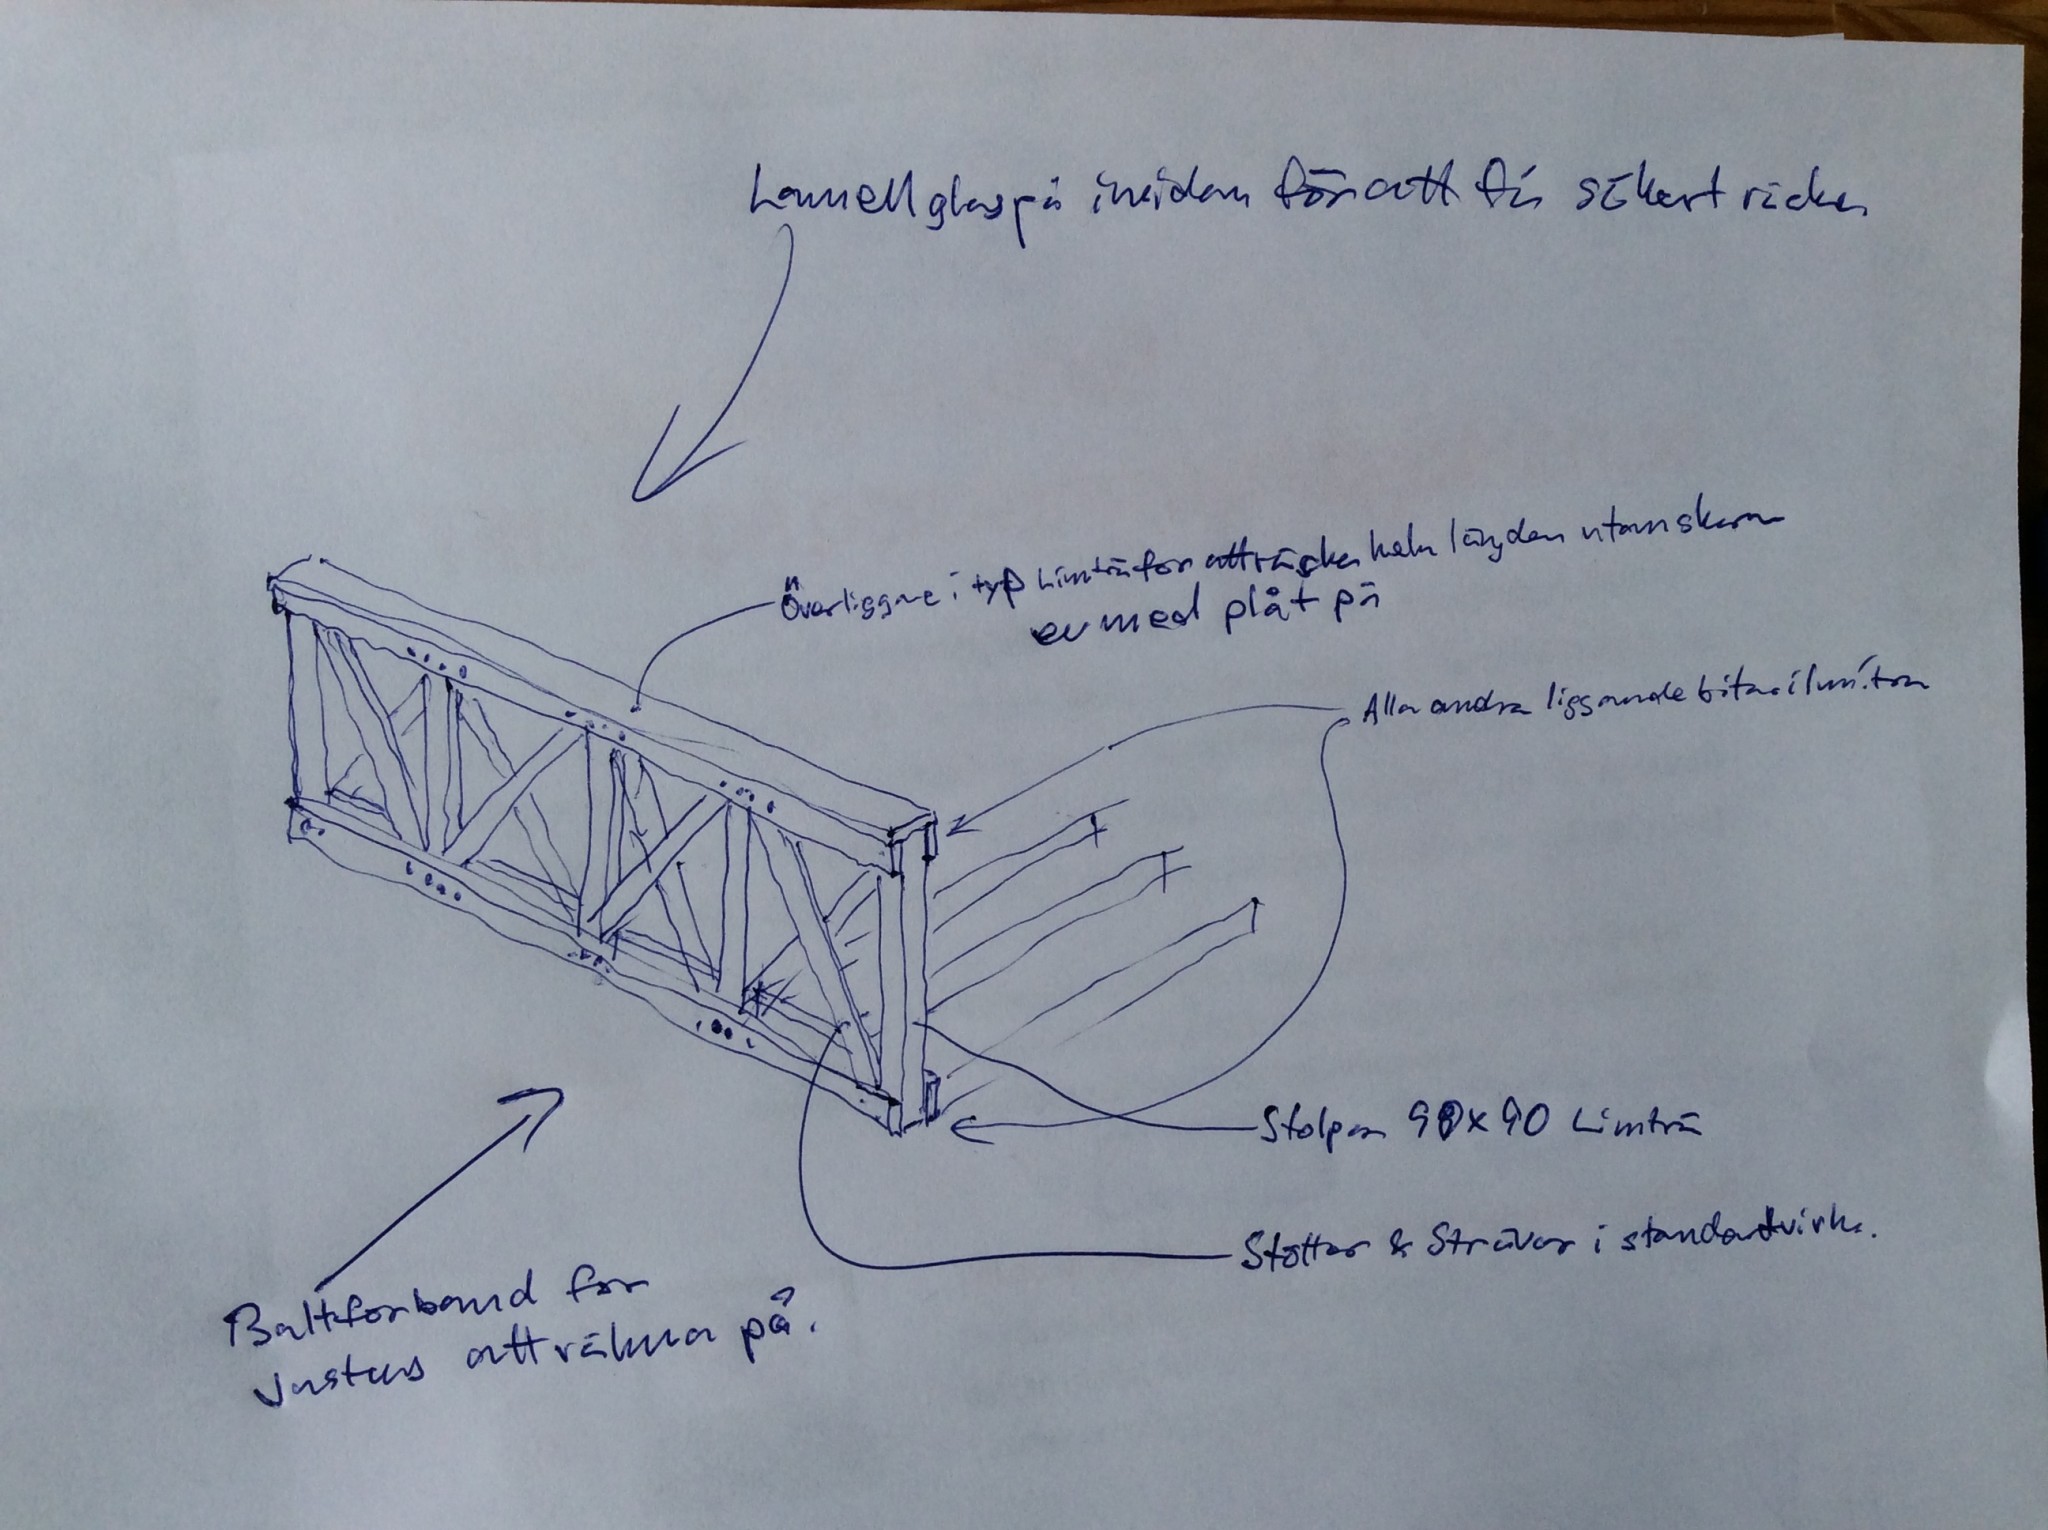 Lamellglas på insidan för att få säkert räcke
Överliggare i typ Limträ för att räcka hela längden utan skarv
ev med plåt på
Alla andra liggande bitar i limträ
Stolpar 90x90 Limträ
Stöttor & Strävor i standardvirke.
Bultförband för
Justus att räkna på.